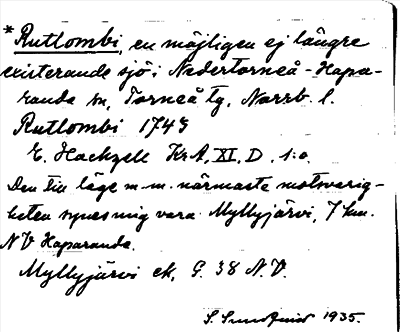 *Rutlombi, en möjligen ej längre
existerande sjö i Nedertorneå-Hapa-
randa sn, Torneå tg, Norrb. l.
Rutlombi 1743
E. Hackzell KrA, XI, D, 1:a.
Den till läge m.m. närmaste motsvarig-
heten synes mig vara Myllyjärvi, 7 km.
NV Haparanda.
Myllyjärvi ek, G. 38 N.V.
S. Sundquist 1935.